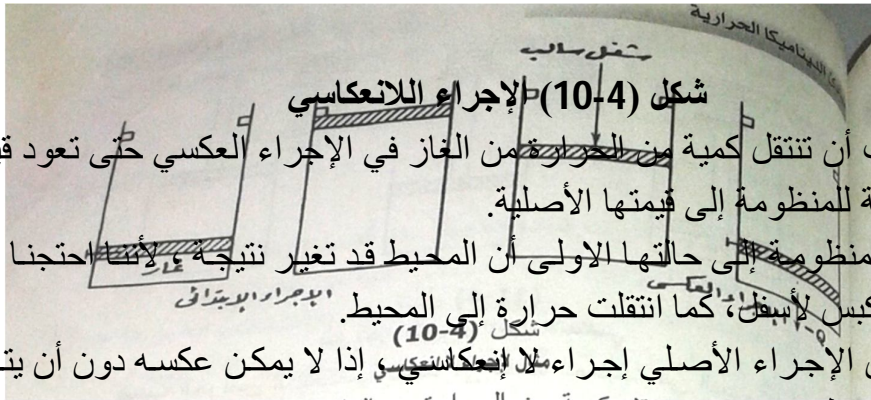 الديناميكا الحرارية
شغل سالب
شكل (4-10) الإجراء اللانعكاسي
أن تنتقل كمية من الحرارة من الغاز في الإجراء العكسي حتى تعود
للمنظومة إلى قيمتها الأصلية.
إلى حالتها الاولى أن المحيط قد تغير نتيجة ، لأننا احتجنا
غاز
لأسفل، كما انتقلت حرارة إلى المحيط.
الإجراء الإبتدائى
الإجراء العكسى
شكل (4-10)
الإجراء الأصلي إجراء لا إنعكاسي ، إذا لا يمكن عكسه دون أن